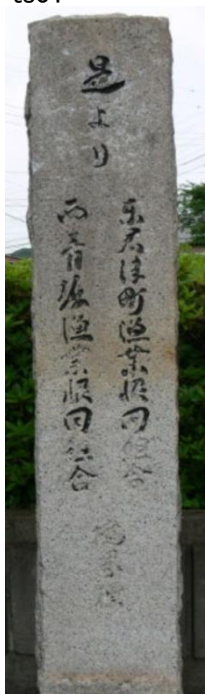 是より
東君津町漁業協同組合
西青堀漁業協同組合